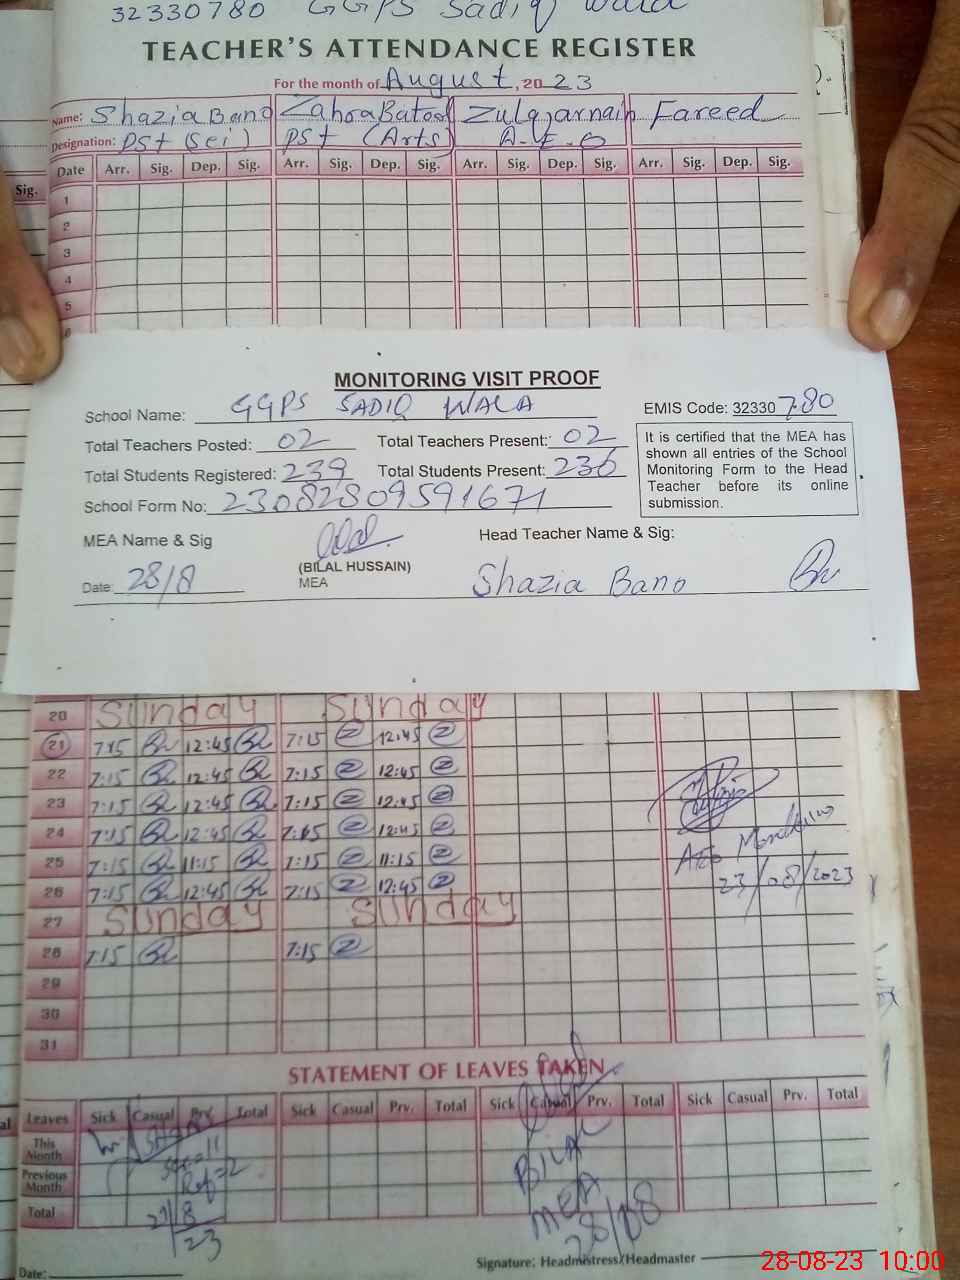 32330780 GGPS Sadiq Wala
TEACHER'S ATTENDANCE REGISTER
For the month of August, 2023
Name: Shazia Bano Zahra Batool Zulqarnain Fareed
Designation: PST (Sci) PST (Arts) A.E.O
Date Arr. Sig. Dep. Sig. Arr. Sig. Dep. Sig. Arr. Sig. Dep. Sig. Arr. Sig. Dep. Sig.
Sig.
1
2
3
4
5
6
MONITORING VISIT PROOF
School Name: GGPS SADIQ WALA
EMIS Code: 32330780
Total Teachers Posted: 02 Total Teachers Present: 02
Total Students Registered: 239 Total Students Present: 236
School Form No: 23082809591671
It is certified that the MEA has
shown all entries of the School
Monitoring Form to the Head
Teacher before its online
submission.
MEA Name & Sig
Head Teacher Name & Sig:
(BILAL HUSSAIN)
MEA
Date: 28/8
Shazia Bano
20 Sunday Sunday
21 7:15 12:45 7:15 12:45
22 7:15 12:45 7:15 12:45
23 7:15 12:45 7:15 12:45
24 7:15 12:45 7:15 12:45
25 7:15 11:15 7:15 11:15
26 7:15 12:45 7:15 12:45
27 Sunday Sunday
28 7:15 7:15
29
30
31
23/08/2023
STATEMENT OF LEAVES TAKEN
Leaves Sick Casual Prv. Total Sick Casual Prv. Total Sick Casual Prv. Total Sick Casual Prv. Total
This Month
Previous Month
Total
Ref=2
8
23
BILAL
MEA
28/08
Signature: Headmistress/Headmaster
Date:
28-08-23 10:00